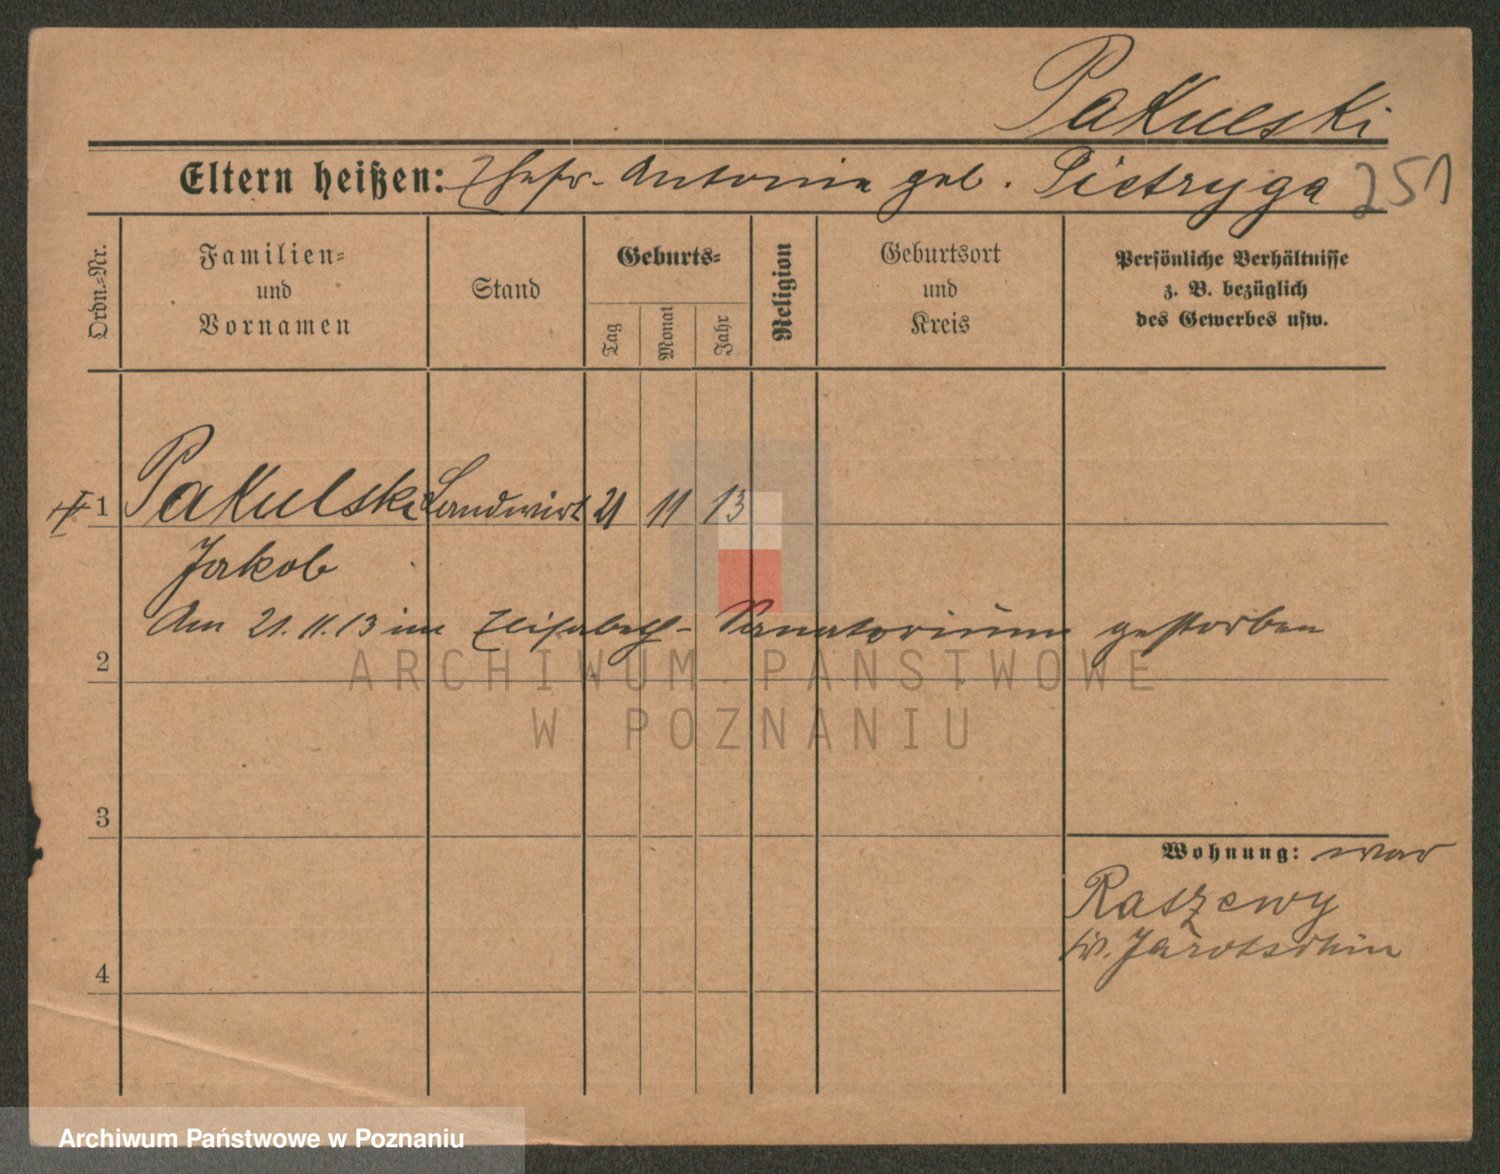 Pakulski
Eltern heißen: Ehefr. Antonie geb. Pietryga 251
Ordn.-Nr.
Familien-
und
Vornamen
Stand
Geburts-
Tag
Monat
Jahr
Religion
Geburtsort
und
Kreis
Persönliche Verhältnisse
z. B. bezüglich
des Gewerbes usw.
1 Pakulski Landwirt 21 11 13
Jakob
Am 21.11.13 im Elisabeth- Sanatorium gestorben
2
ARCHIWUM PAŃSTWOWE
W POZNANIU
3
Wohnung: war
Raszewy
Kr. Jarotschin
4
Archiwum Państwowe w Poznaniu